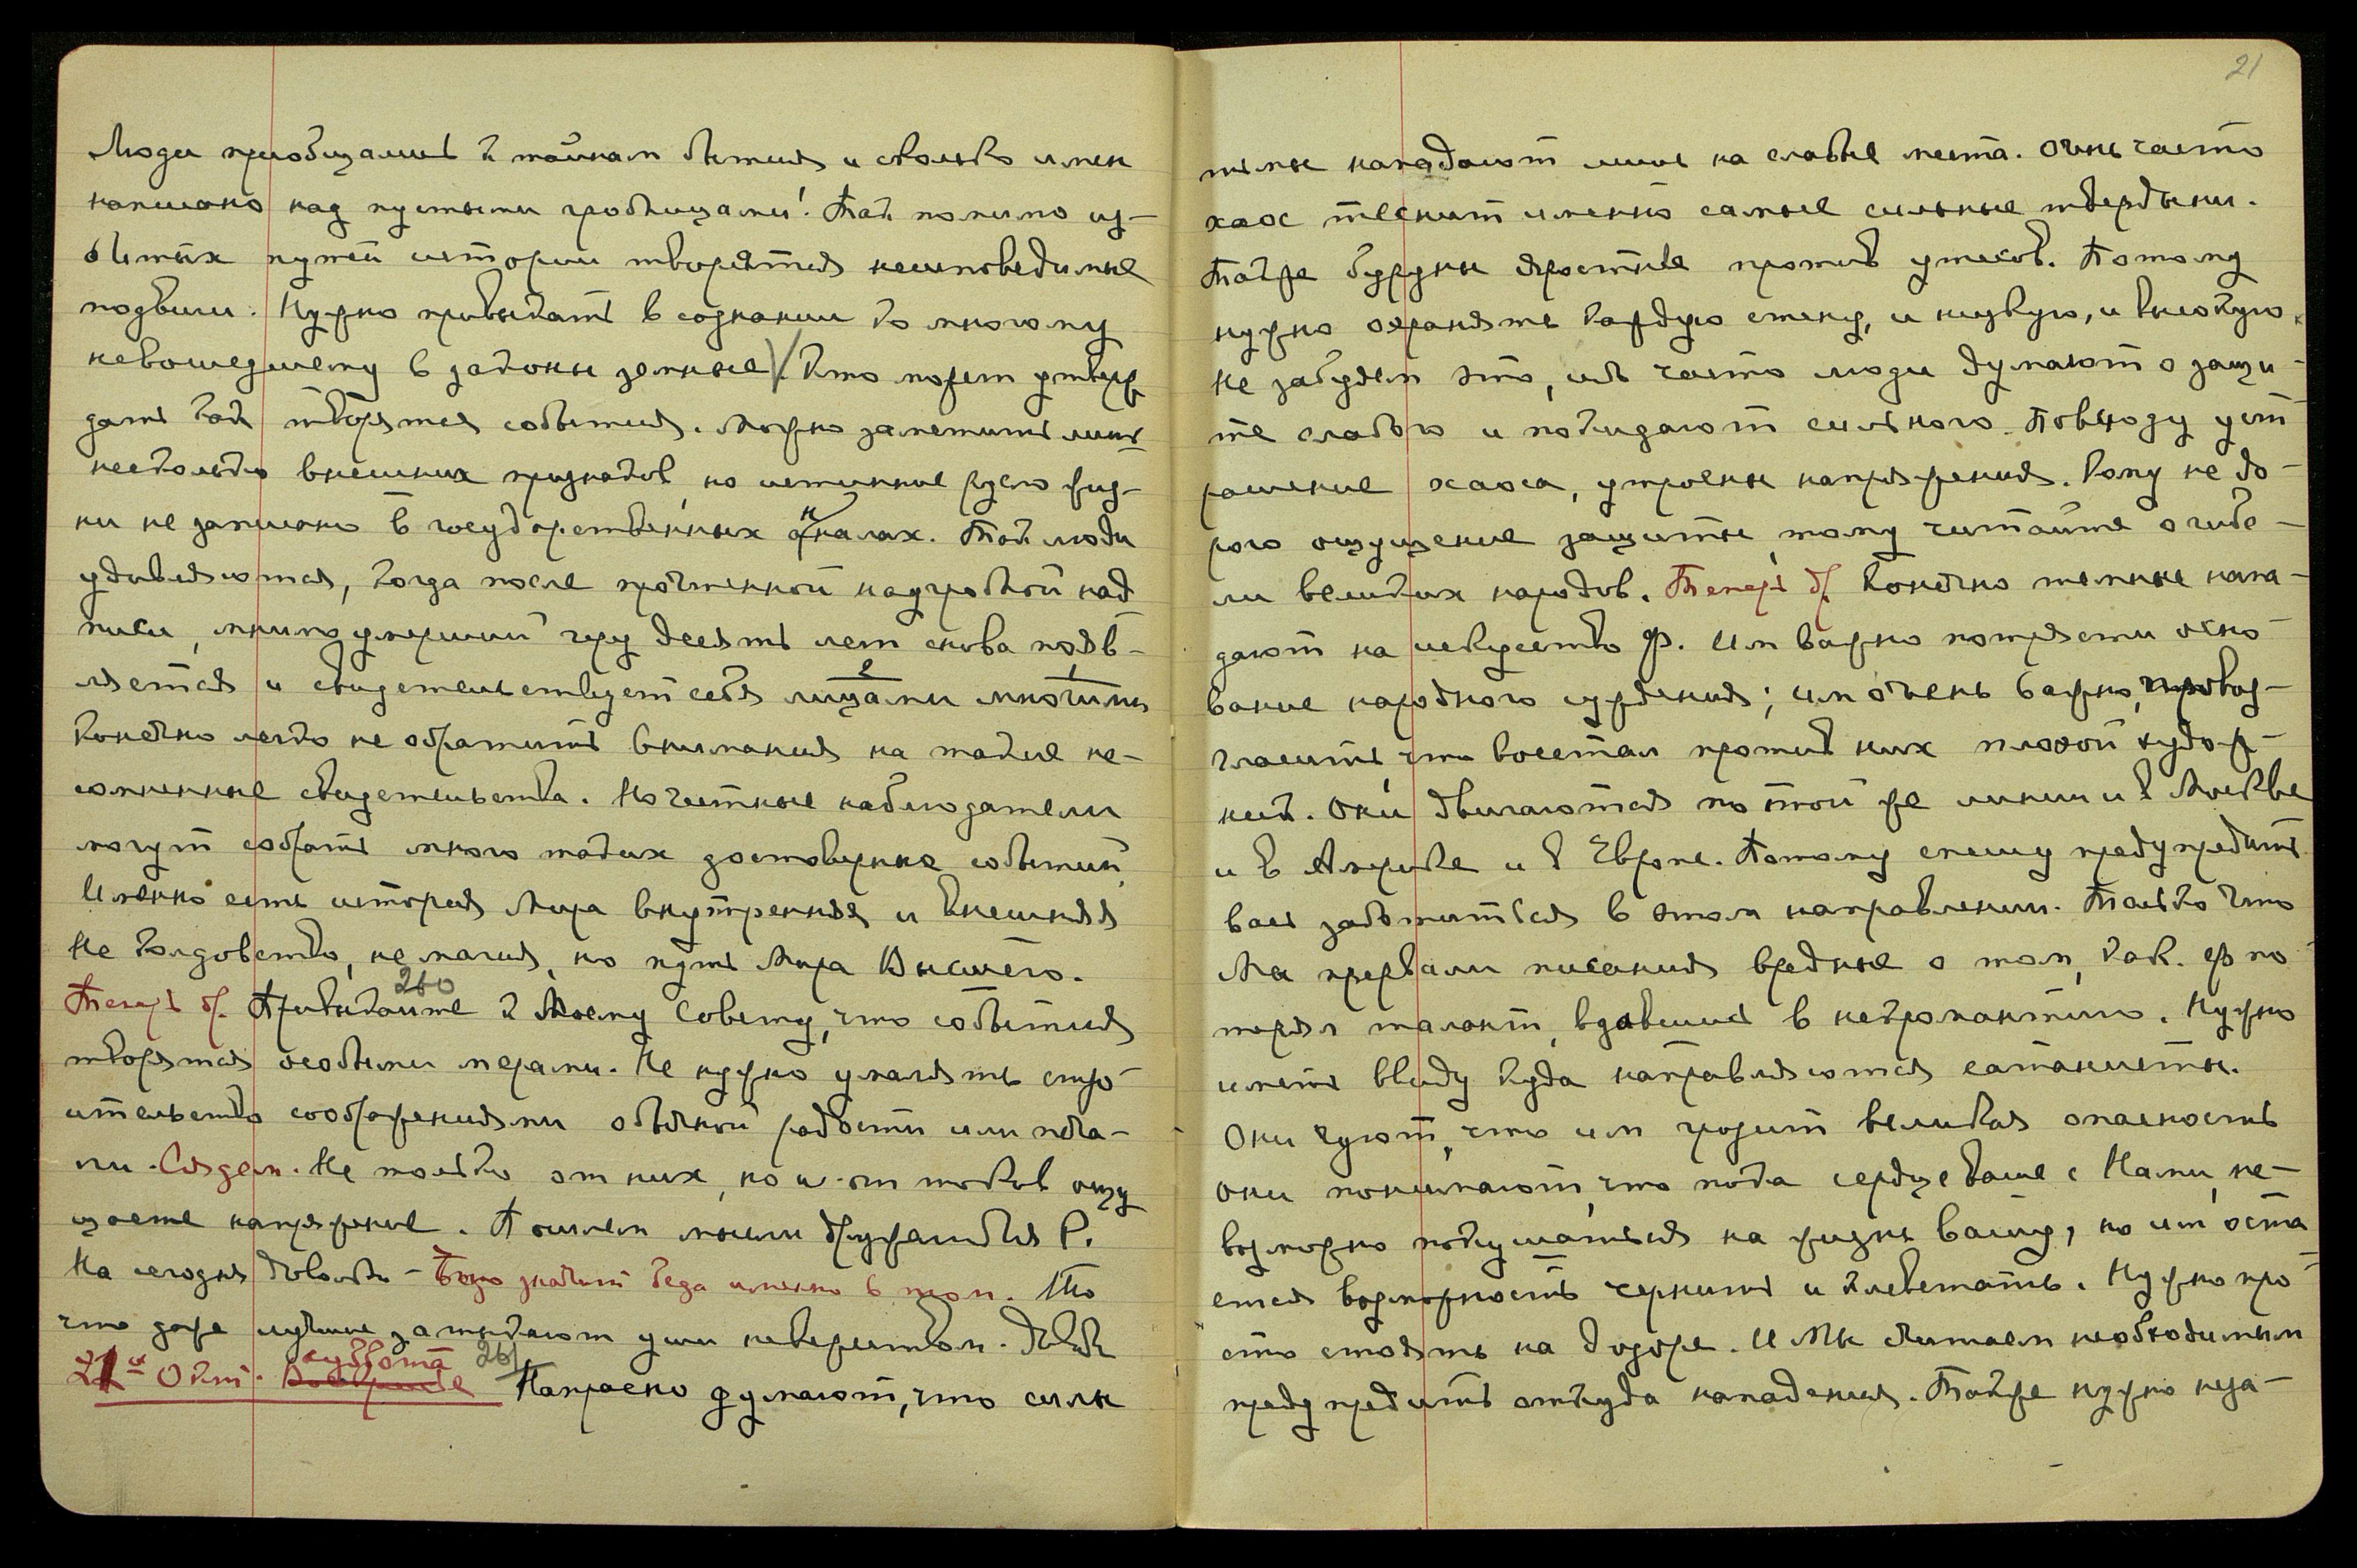 Люди приобщались к тайнам бытия и сколько имен
написано над пустыми гробницами! Так помимо из-
битых путей истории творятся неисповедимые
подвиги. Нужно привыкать в сознании ко многому
невошедшему в законы земные. Кто может утверж
дать как творятся события. Можно заметить лишь
несколько внешних признаков, но истинное русло жиз-
ни не записано в государственных анналах. Так люди
удивляются, когда после прочтенной надгробной над
писи, мнимо умерший чрез десять лет снова появ-
ляется и свидетельствует себя лицами многими
Конечно легко не обратить внимания на такие не-
сомненные свидетельства. Но честные наблюдатели
могут собрать много таких достоверных событий,
Именно есть история Мира внутренняя и внешняя
Не колдовство, не магия, но путь Мира Высшего.
260
Теперь др. Привыкайте к Моему Совету, что события
творятся особыми мерами. Не нужно умалять стро-
ительство соображениями обычной радости или печа-
ли. Сядем. Не только от них, но и от токов ощу
щаете напряжение. Пошлем мысли дружелюбия
На сегодня довольно - значит беда именно в том. Что
что даже лучшие затыкают уши неверием.
21 Окт. суббота 261 Напрасно думают, что силы
21
темные нападают лишь на слабые места. Очень часто
хаос теснит именно самые сильные твердыни.
Также буруны яростные против утесов. Потому
нужно охранять каждую стену, и низкую, и высокую.
Не забудем это, ибо часто люди думают о защи-
те слабого и покидают сильного. Повсюду уст
рашение хаоса, утроены напряжения. Кому не до-
рого ощущение защиты, тому читайте о гибе-
ли великих народов. Теперь др. Конечно темные напа-
дают на искусство Ф. Им важно потрясти осно-
вание народного суждения; им очень важно, провоз-
гласить, что восстал против них плохой худож-
ник. Они двигаются по той же линии и в Москве
и в Америке и в Европе. Потому спешу предупредить
вас заботиться в этом направлении. Только что
Мы прервали писания вредные о том, как Ф по
терял талант, вдавшись в некромантию. Нужно
иметь ввиду куда направляются сатанисты.
Они чуют, что им грозит великая опасность
они понимают, что пока сердце ваше с Нами, не-
возможно покушаться на жизнь вашу, но им оста
ется возможность чернить и клеветать. Нужно про
сто стоять на дозоре. И Мы считаем необходимым
предупредить откуда нападения. Также нужно неза-